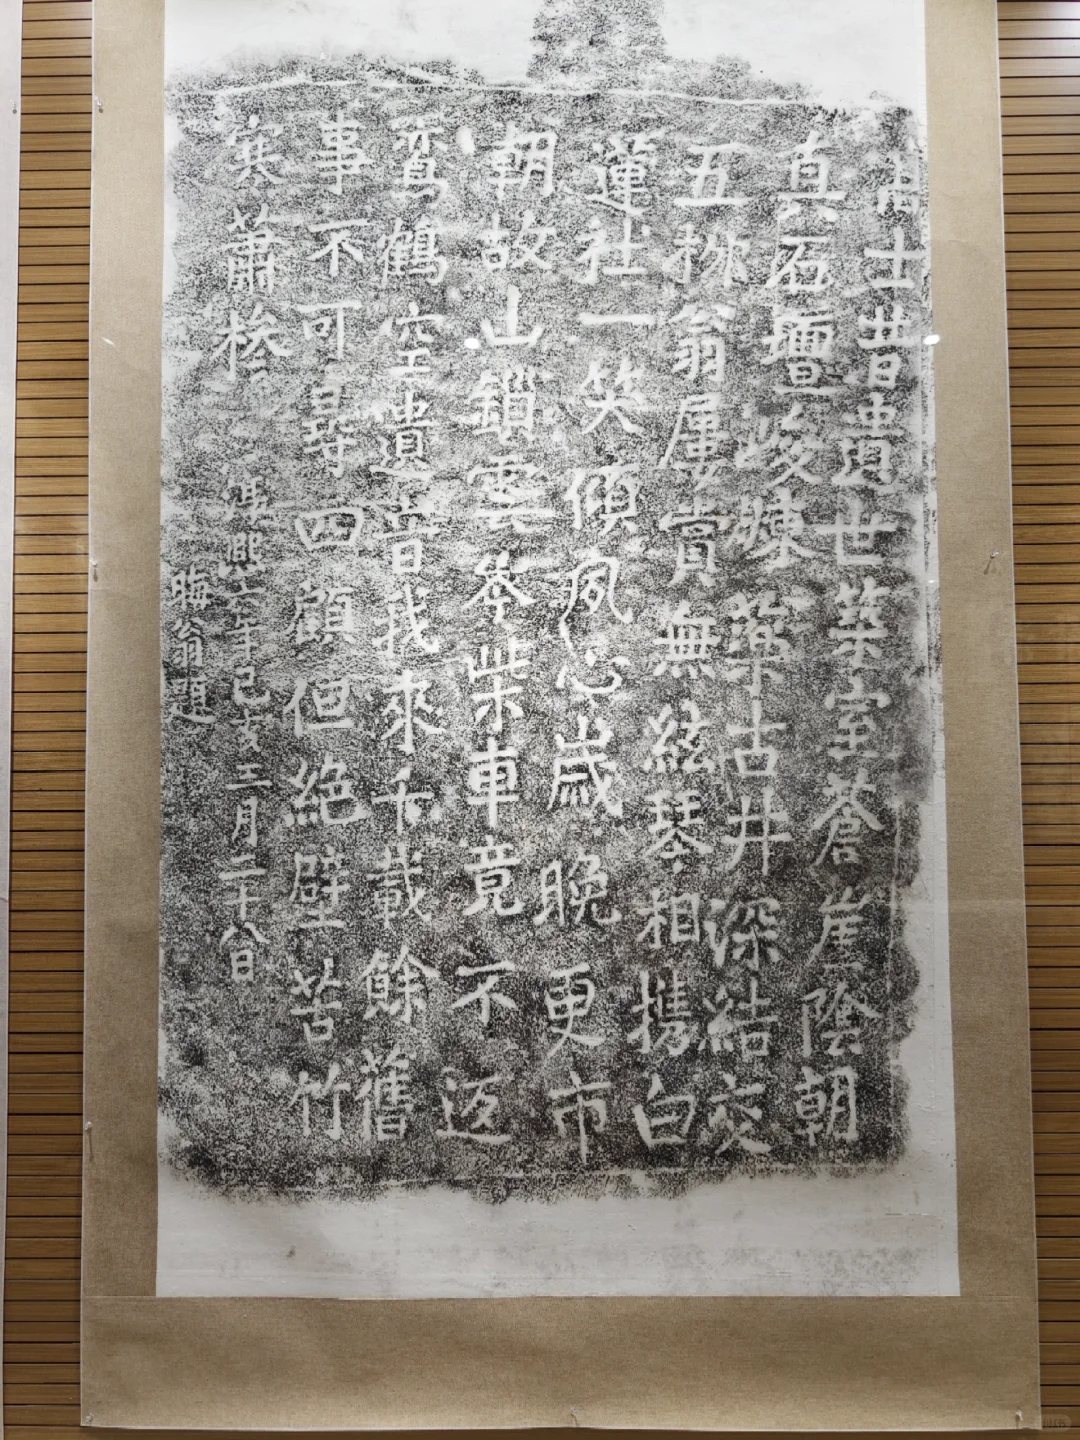 高士昔遺世築室蒼崖陰朝
真石壇峻煉藥古井深結交
五柳翁屢賞無絃琴相攜白
蓮社一笑傾夙心歲晚更市
朝故山鎖雲岑柴車竟不返
鸞鶴空遺音我來千載餘舊
事不可尋四顧但絕壁苦竹
寒蕭槮 淳熙六年己亥三月二十八日
晦翁題